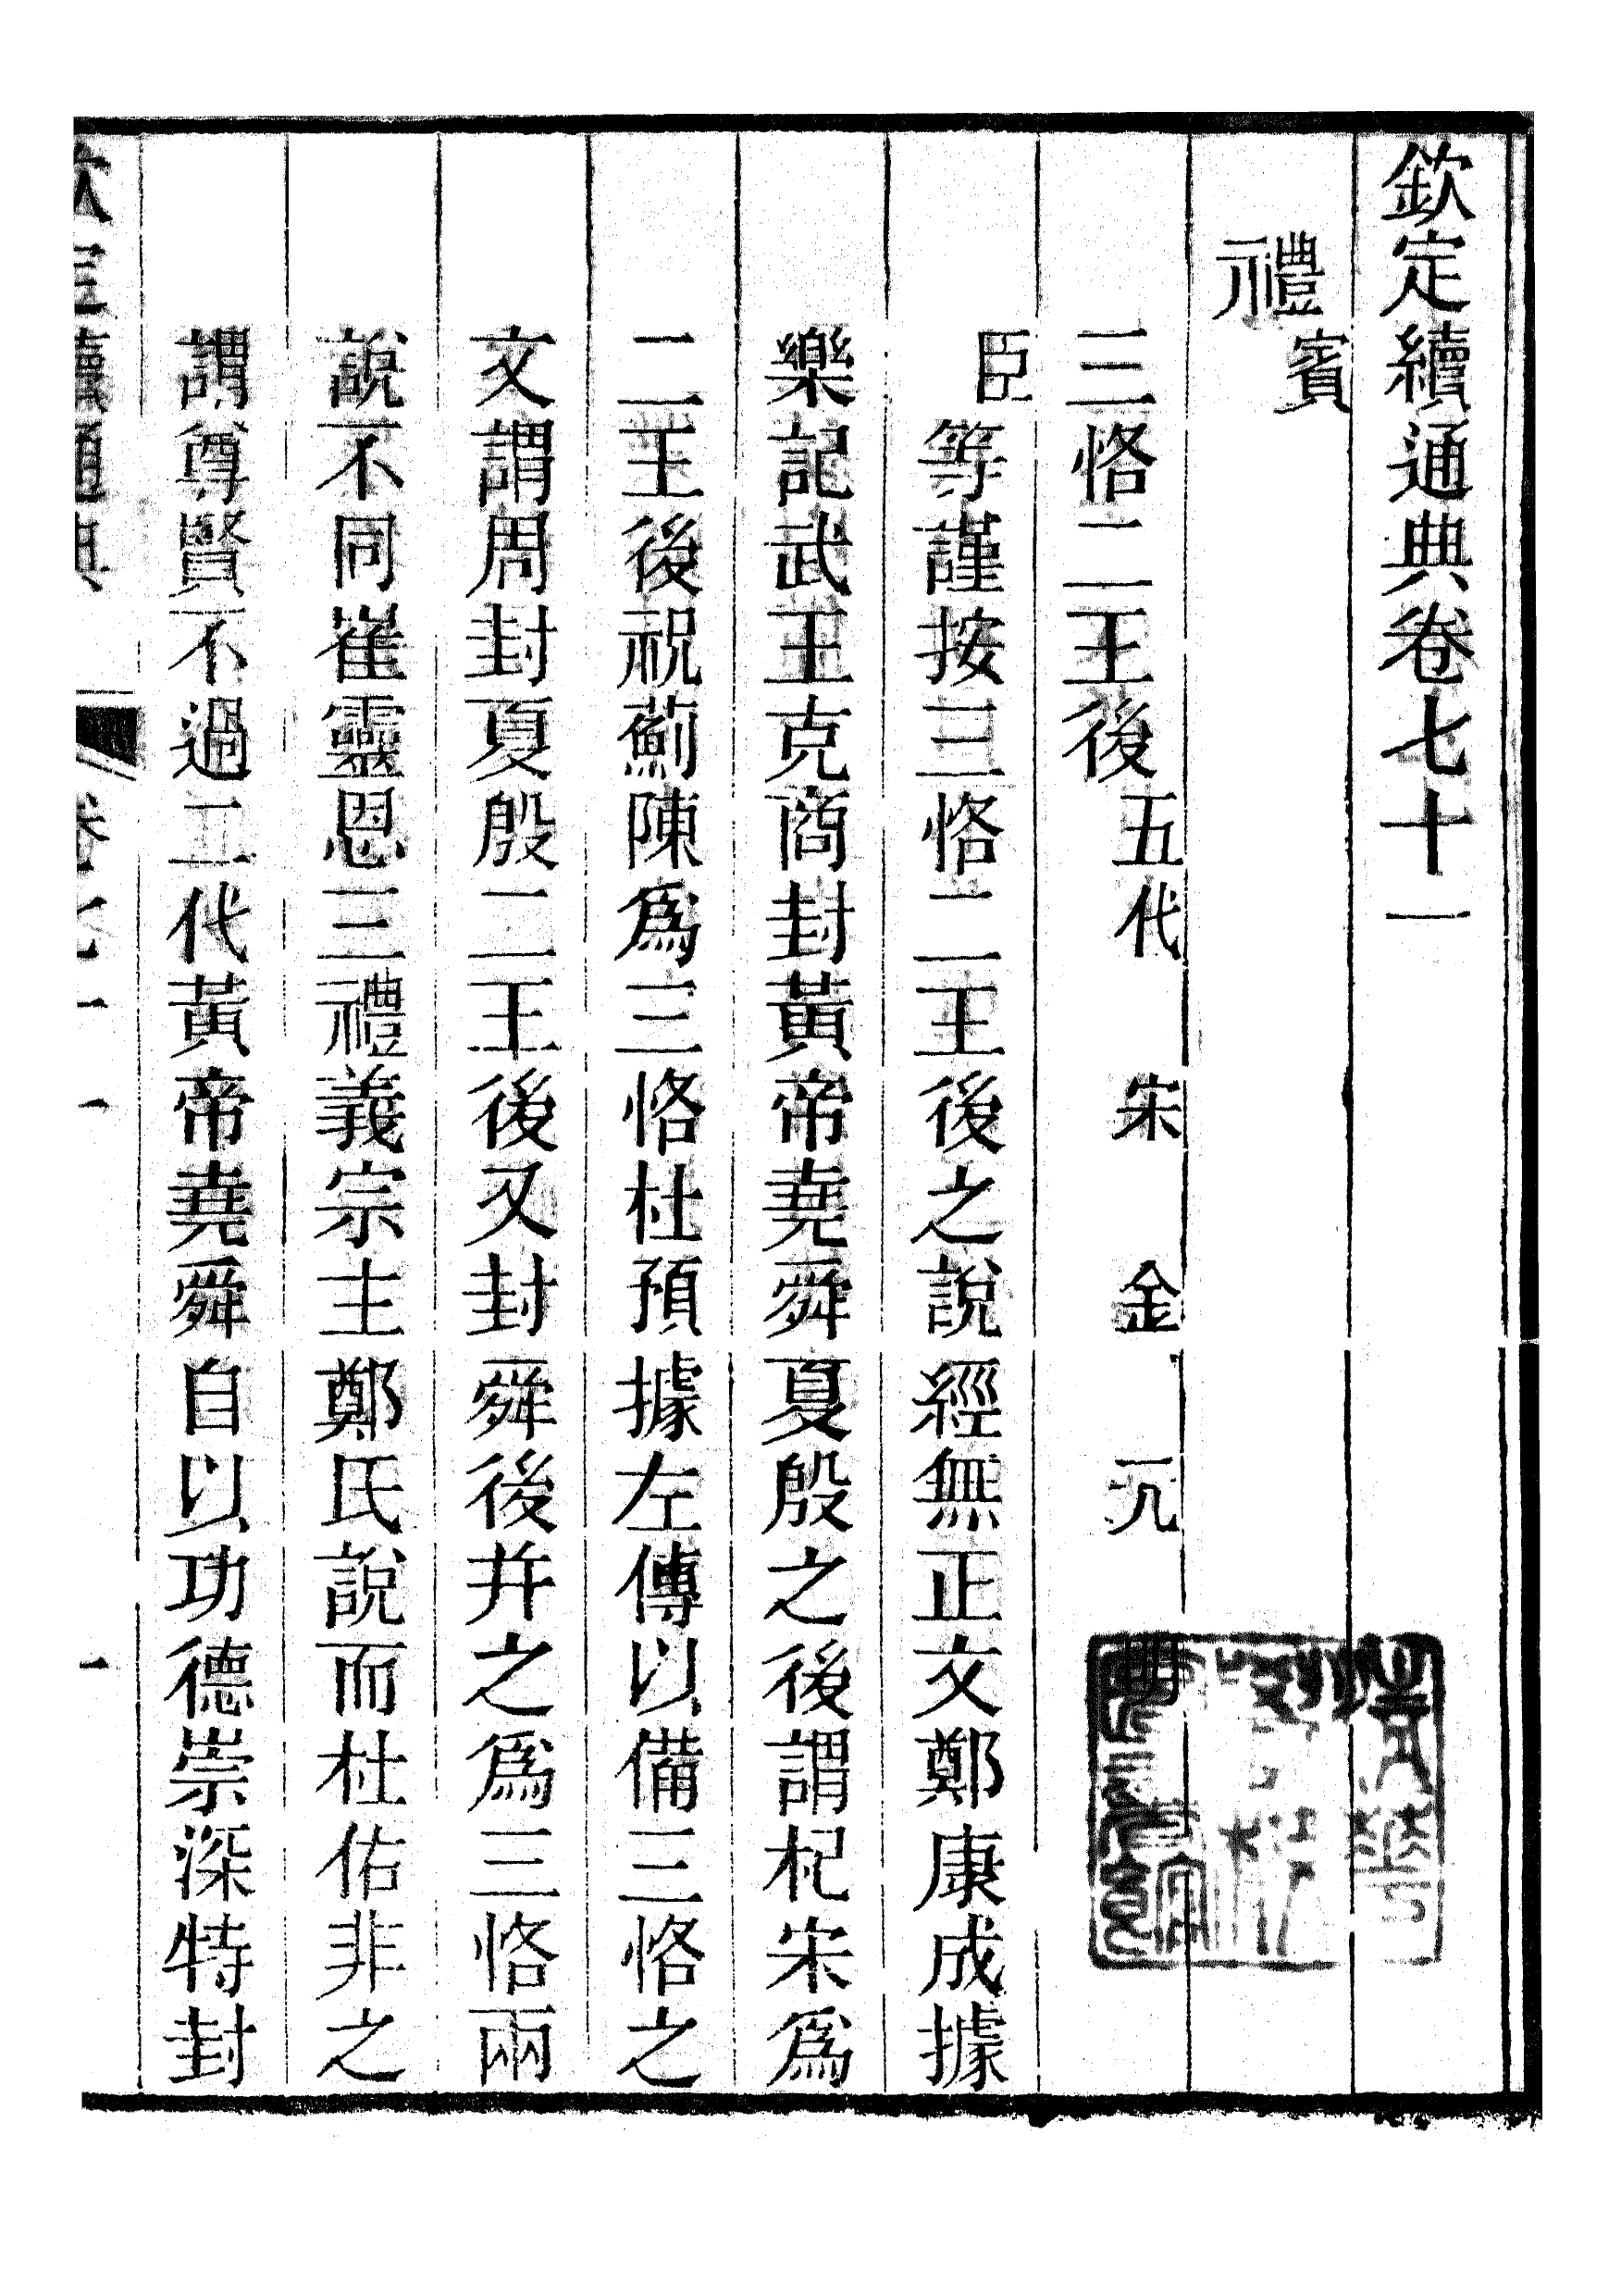 欽定續通典卷七十一
禮賓
三恪二王後五代 宋 金 元 明
臣等謹按三恪二王後之說經無正文鄭康成據
樂記武王克商封黃帝堯舜夏殷之後謂杞宋為
二王後祝薊陳為三恪杜預據左傳以備三恪之
文謂周封夏殷二王後又封舜後并之為三恪兩
說不同崔靈恩三禮義宗主鄭氏說而杜佑非之
謂尊賢不過二代黃帝堯舜自以功德崇深特封